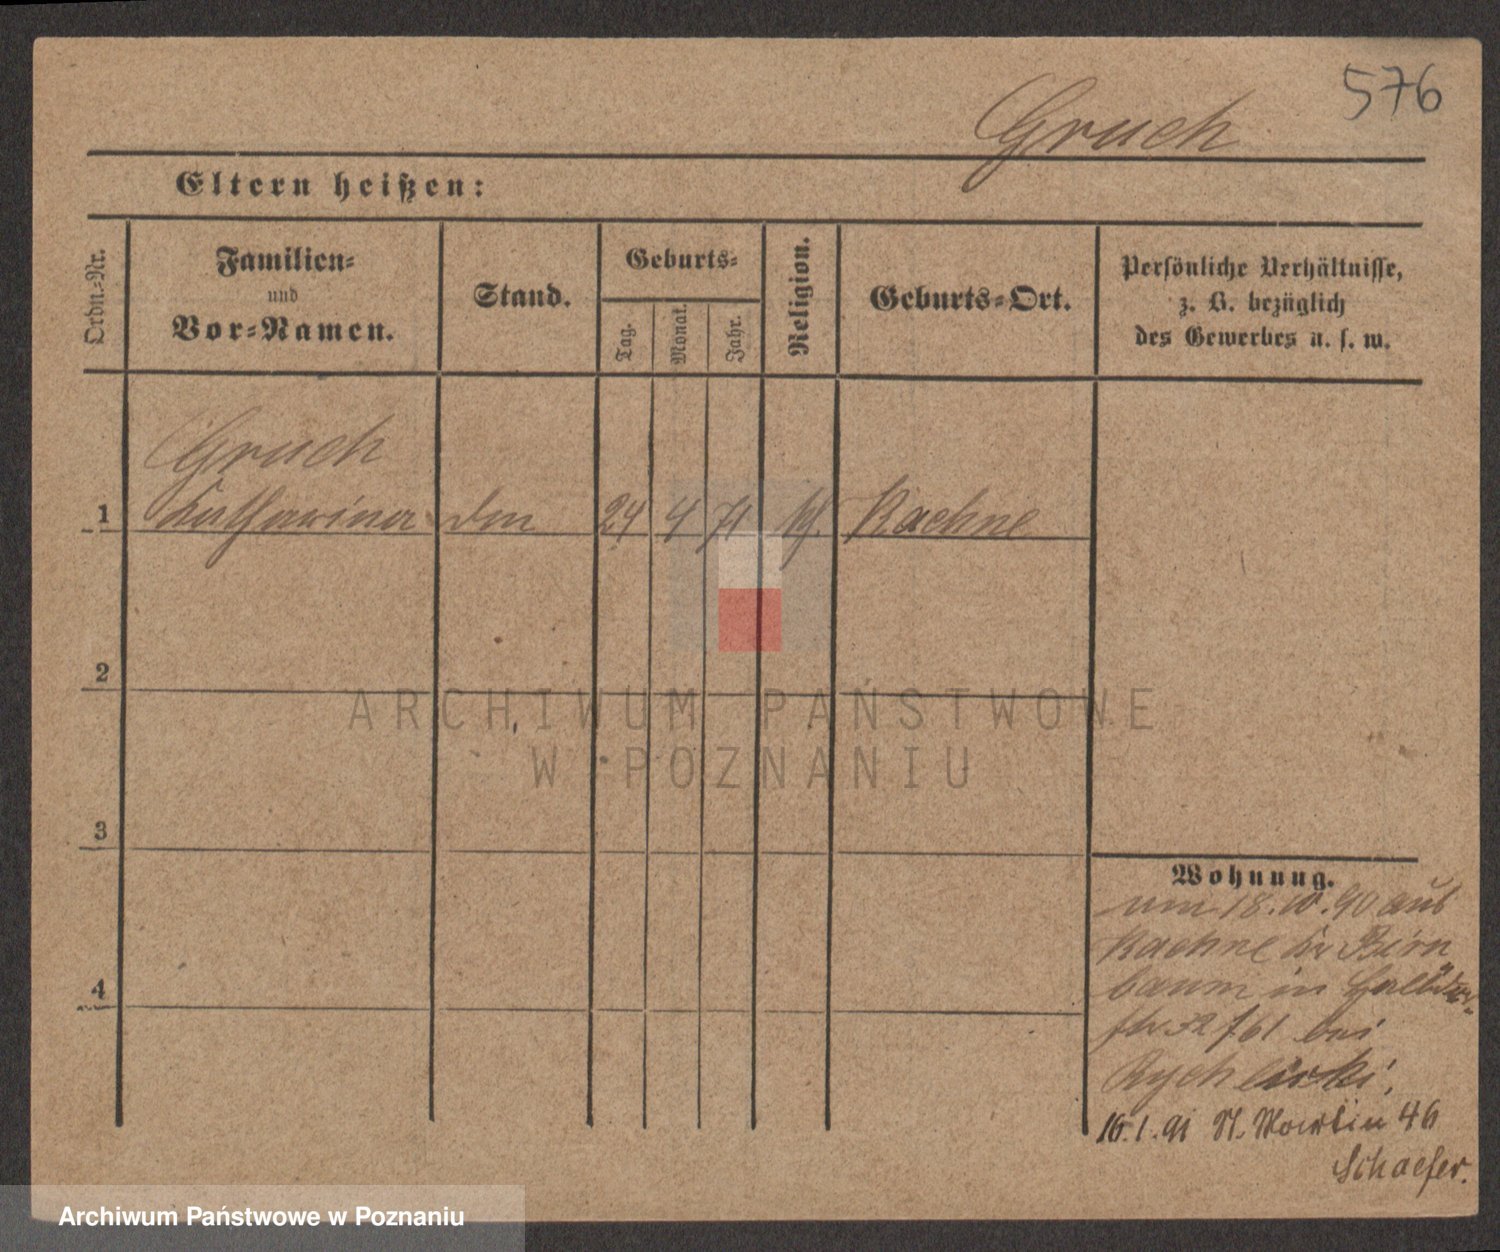 576
Gruch
Eltern heißen:
Ordn.-Nr.
Familien-
und
Vor-Namen.
Stand.
Geburts-
Tag.
Monat.
Jahr.
Religion.
Geburts-Ort.
Persönliche Verhältnisse,
z. B. bezüglich
des Gewerbes u. s. w.
Gruch
1 Katharina 24 4 71 Kaehne
2
3
4
Wohnung.
18. 10. 90 aus
Kaehne Kr Birn
baum in
bei
16.1.91 St. Martin 46
Schaefer.
ARCHIWUM PAŃSTWOWE
W POZNANIU
Archiwum Państwowe w Poznaniu